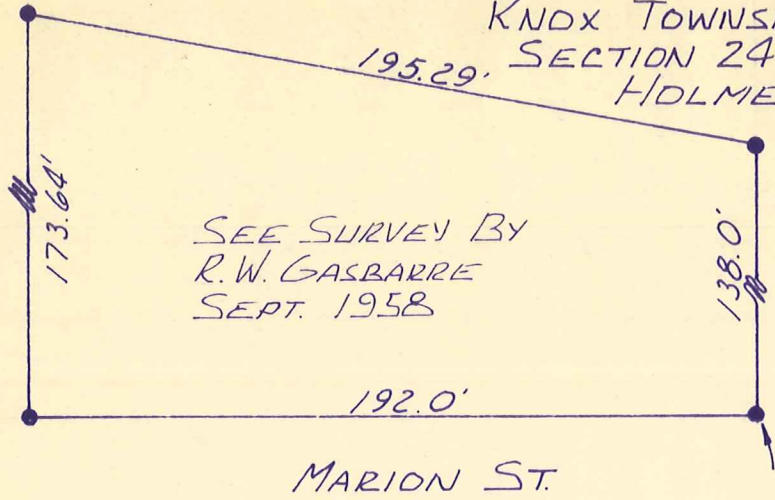 KNOX TOWNS
SECTION 24
HOLME
195.29'
173.64'
SEE SURVEY BY
R.W. GASBARRE
SEPT. 1958
138.0'
192.0'
MARION ST.